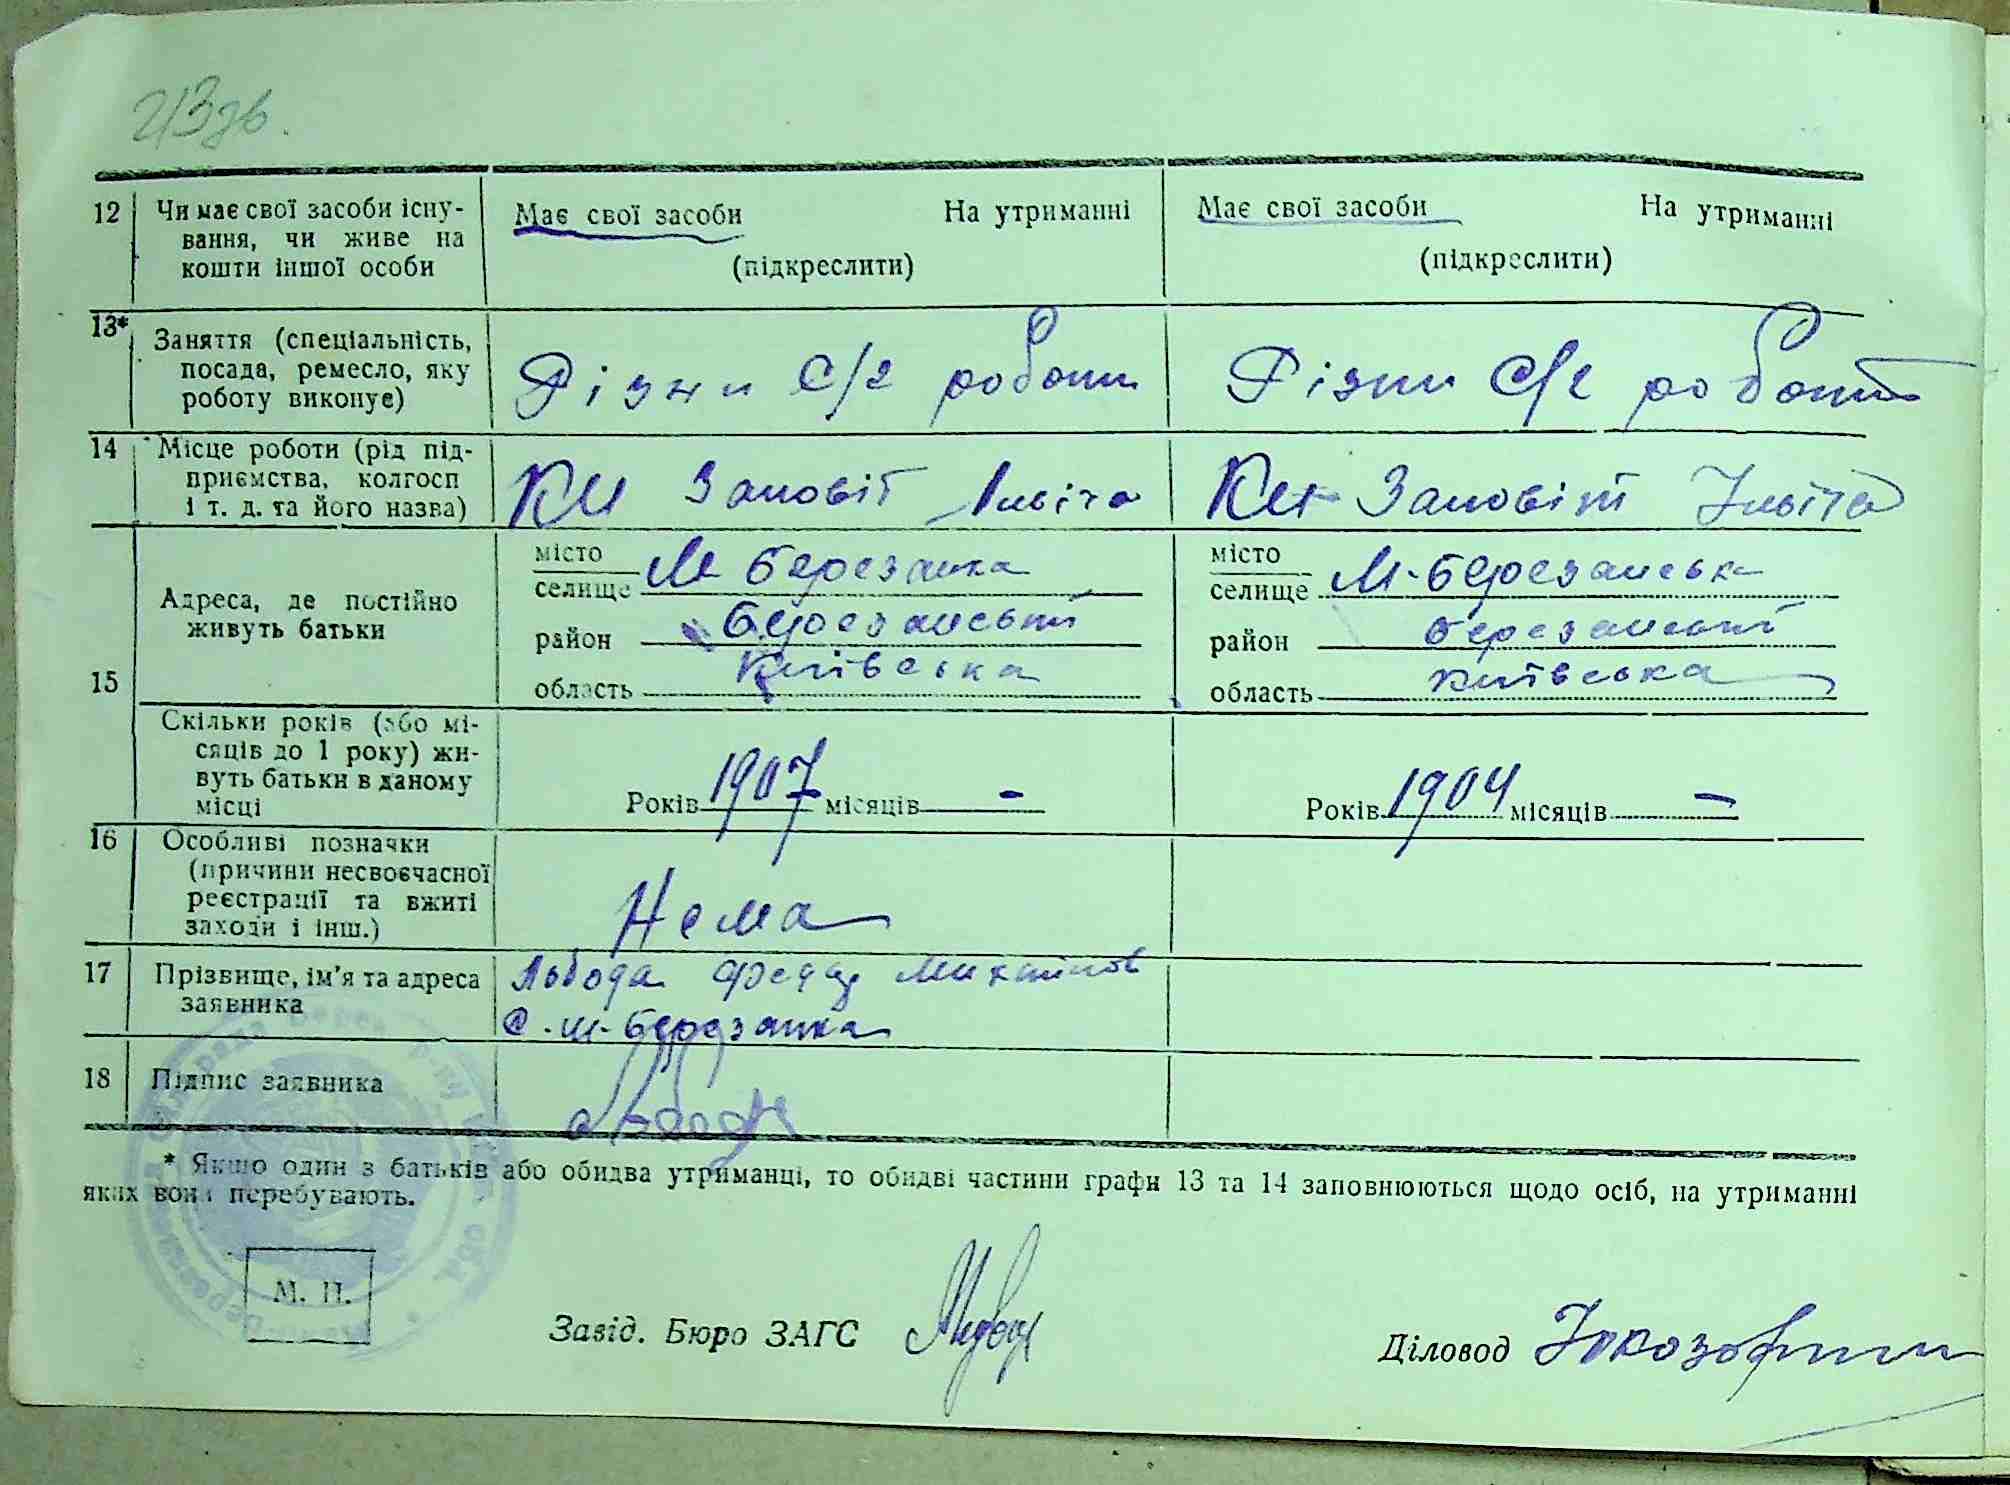 213 зв.
12 Чи має свої засоби існу-
вання, чи живе на
кошти іншої особи
Має свої засоби На утриманні
(підкреслити)
Має свої засоби На утриманні
(підкреслити)
13* Заняття (спеціальність,
посада, ремесло, яку
роботу виконує)
Різни с/г роботи
Різни с/г роботи
14 Місце роботи (рід під-
приємства, колгосп
і т. д. та його назва)
Заповіт Ілліча
Заповіт Ілліча
15 Адреса, де постійно
живуть батьки
місто
селище М Березанка
район Березанський
область Київська
місто
селище М-Березанська
район Березанський
область Київська
Скільки років (або мі-
сяців до 1 року) жи-
вуть батьки в даному
місці
Років 1907 місяців -
Років 1904 місяців -
16 Особливі позначки
(причини несвоєчасної
реєстрації та вжиті
заходи і інш.)
Нема
17 Прізвище, ім'я та адреса
заявника
Лобода Михайлов
с. М-Березанка
18 Підпис заявника
* Якщо один з батьків або обидва утриманці, то обидві частини графи 13 та 14 заповнюються щодо осіб, на утриманні
яких вони перебувають.
М. П.
Завід. Бюро ЗАГС
Діловод